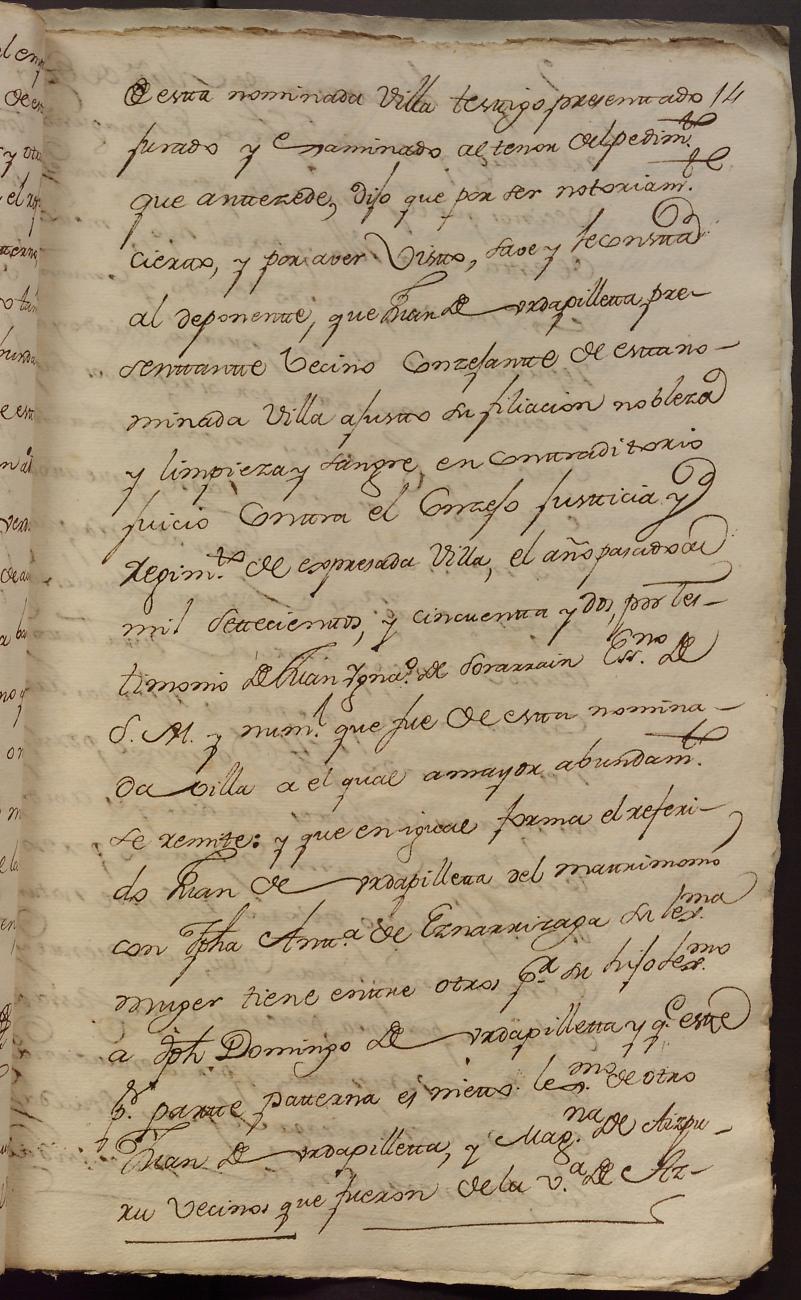 De estta nominada Villa testtigo presenttado 14
jurado y examinado al tenor del pedim.to
que anttezede, dijo que por ser notoriam.te
ciertto, y por aver Vistto, save y le constta
al deponentte, que Juan de Urdapilletta, pre-
senttantte Vecino Conzejantte de estta no-
minada Villa ajustto su filiacion nobleza
y limpieza y sangre, en Conttraditorio
juicio Conttra el Conzejo justticia y
Regim.to de expresada Villa, el año pasado de
mil settecienttos, y cincuentta y dos, por tes-
timonio de Juan Ygna.o de Sorarrain Es.no de
S. M. y num.l que fue de estta nomina-
da villa a el qual a mayor abundam.to
se remite: y que en igual forma el referi-
do Juan de Urdapilletta del mattrimonio
con Jpha Antt.a de Eznarrizaga su lex.ma
muger tiene enttre otros p.r su hijo lex.mo
a Jph Domingo de Urdapilletta y q.e estte
p.r partte patterna es nietto lex.mo de otro
Juan de Urdapilletta, y Mag.na de Aizpu-
ru Vecinos que fueron de la v.a de Az-